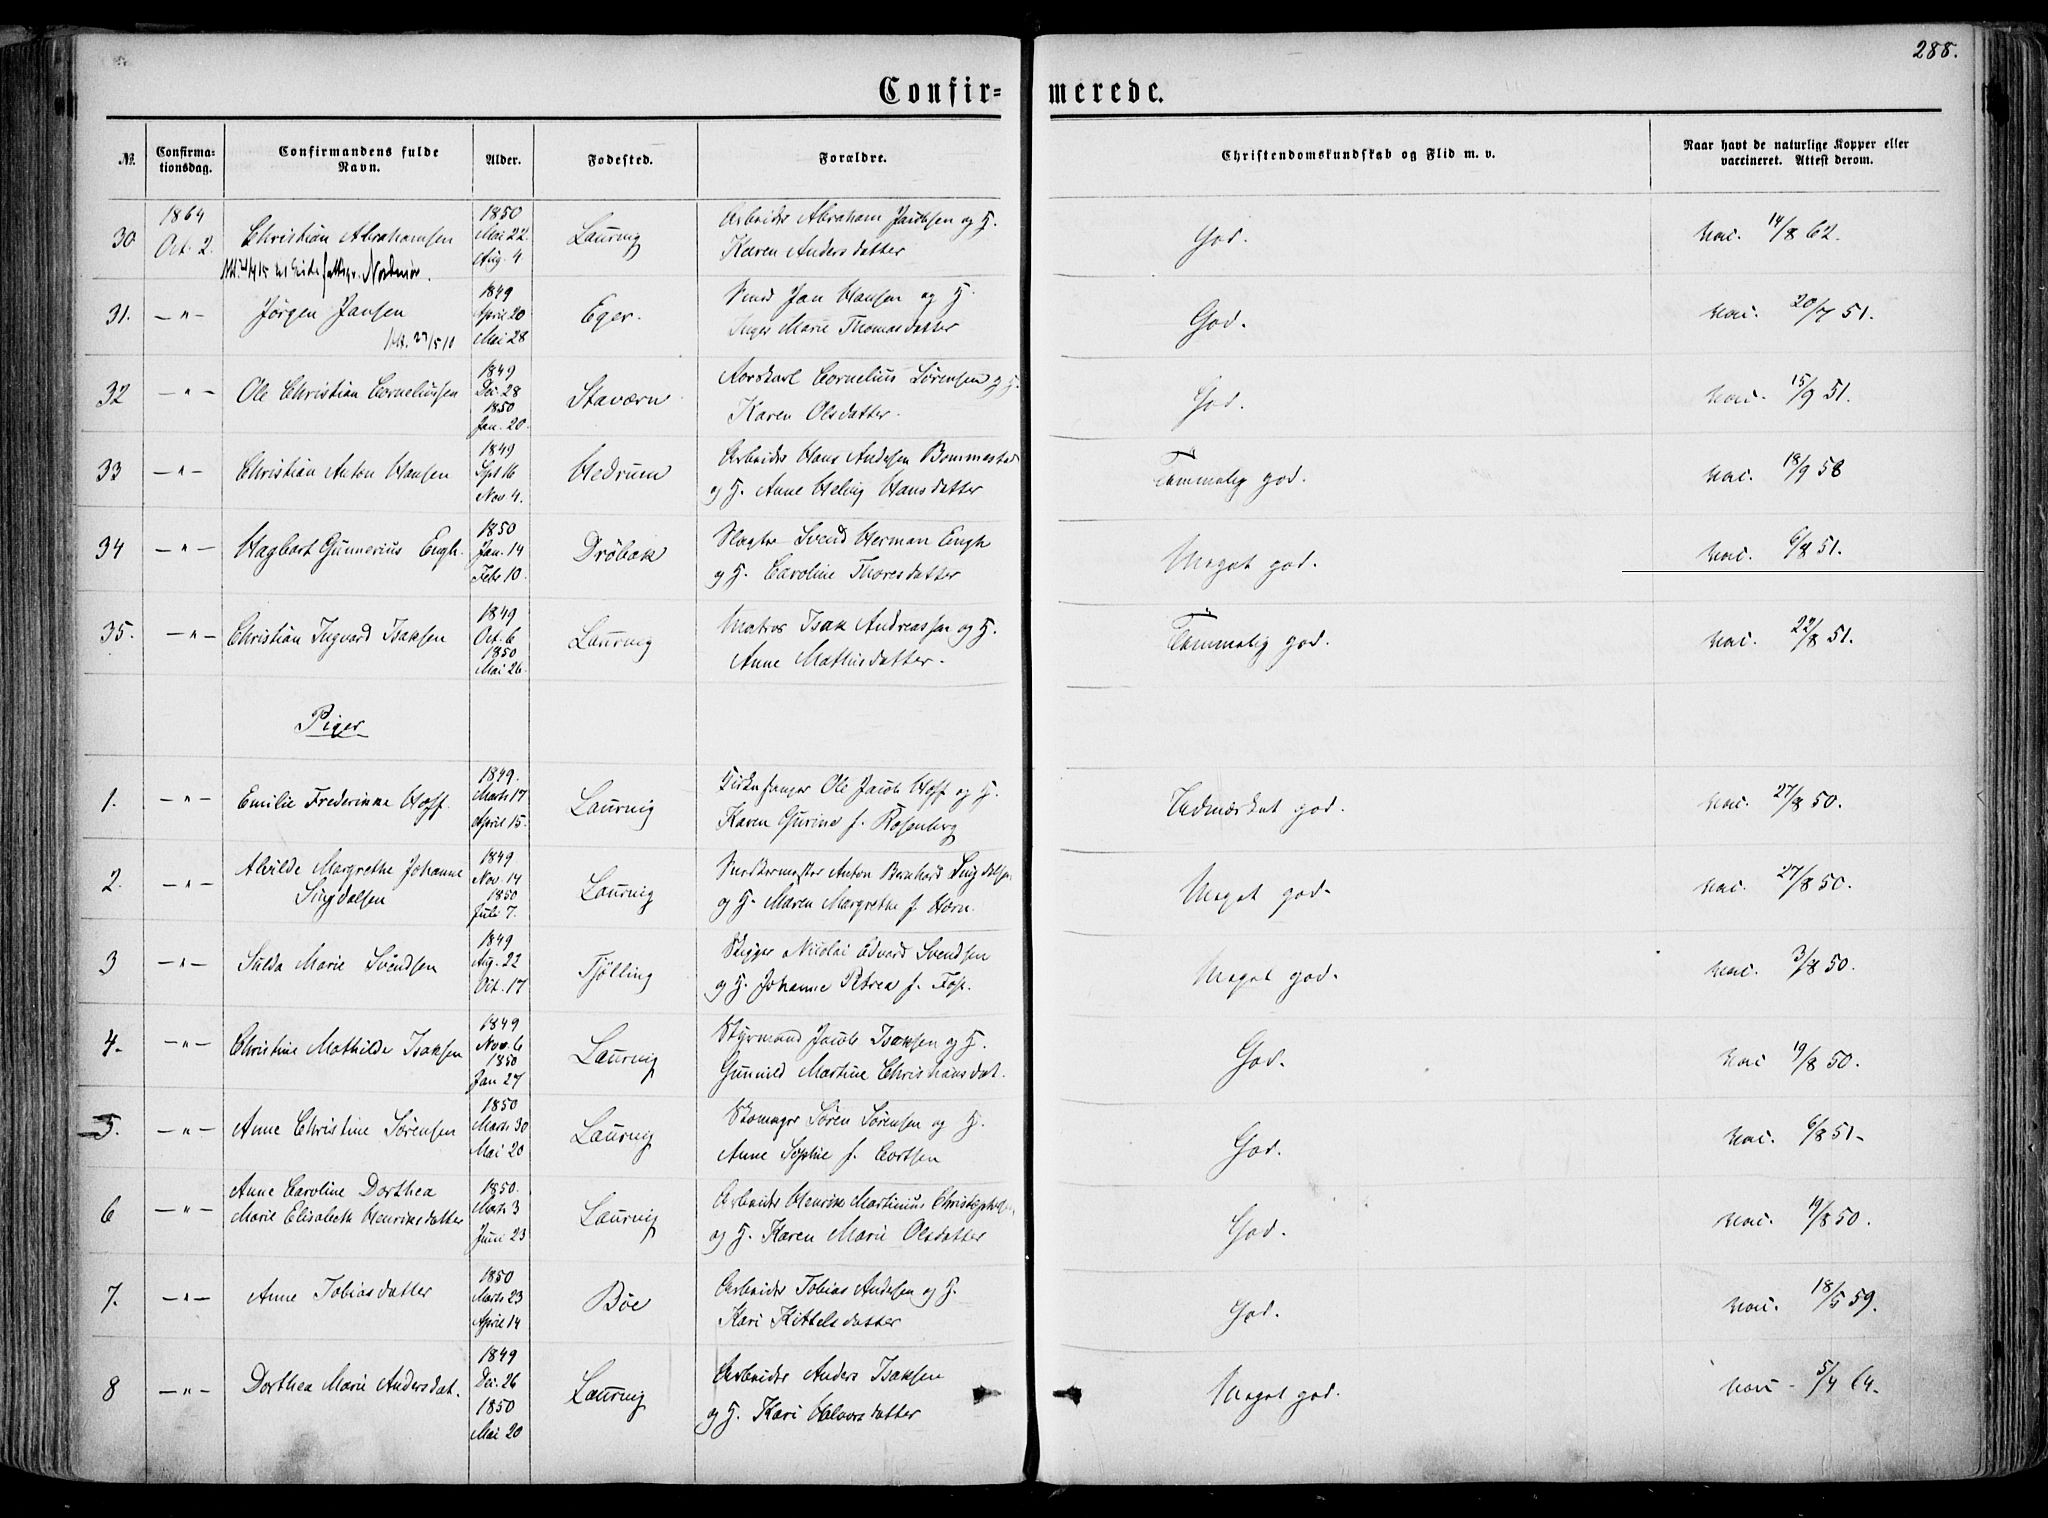 288.
Confirmerede.
№ Confirmationsdag. Confirmandens fulde Navn. Alder. Fødested. Forældre. Christendomskundskab og Flid m. v. Naar havt de naturlige Kopper eller vaccineret. Attest derom.
1864 1850 Arbeider Abraham Jacobsen og H.
30 Oct. 2. Christian Abrahamsen Mai 22. Laurvig God. vac. 14/8 62.
Aug. 4 Karen Andersdatter
Nordmør.
1849 Smed Jan Hansen og H.
31. —"— Jørgen Jansen April 20 Eger. God. vac. 20/7 51.
Mai 28 Inger Marie Thomasdatter
1849 Corneliùs Sørensen og H.
32 —"— Ole Christian Corneliussen Dec. 28 Staværn God. vac. 15/9 51.
1850 Karen Olsdatter.
Jan. 20.
1849 Arbeider Hans Andersen Bommestad
33 —"— Christian Anton Hansen Spt 16 Hedrum Temmelig god. vac. 18/9 58
Nov 4. og H. Anne Helvig Hansdatter
1850 Slagter Svend Herman Engh
34 —"— Hagbart Gunnerius Engh. Jan. 14 Drøbak Meget god. vac. 6/8 51.
Febr 10. og H. Caroline Thoresdatter
1849 Matros Isak Andreassen og H.
35. —"— Christian Ingvard Isaksen Oct. 6 Laurvig Temmelig god. vac. 22/8 51.
1850 Anne Mathisdatter.
Mai 26.
Piger
1849. Ole Jacob Hoff og H.
1. —"— Emilie Frederikke Hoff. Marts 17 Laurvig Udmærket god. vac. 27/8 50.
April 15. Karen Gurine f. Rosenberg
Alvilde Margrethe Johanne 1849 Anton Bernhard Singdalsen
2. —"— Singdalsen Nov 14 Laurvig Meget god. vac. 27/8 50.
1850 og H. Maren Margrethe f. Horn.
Juli 7.
1849 Skipper Nicolai Edvard Svendsen
3 —"— Hulda Marie Svendsen Aug. 22 Tjølling Meget god. vac. 3/8 50.
Oct. 17 og H. Johanne Petrea f. Foss.
1849 Styrmand Jacob Isaksen og H.
4. —"— Christine Mathilde Isaksen Nov. 6 Laurvig God. vac 19/8 50.
1850 Gunnild Martine Christiansdat.
Jan 27
1850 Skomager Søren Sørensen og H.
5. —"— Anne Christine Sørensen Marts 30 Laurvig God. vac. 6/8 51.
Mai 20 Anne Sophie f. Cortsen
Anne Caroline Dorthea 1850. Arbeider Henrik Martinius Christophersen
6 —"— Marie Elisabeth Henriksdatter Marts 3 Laurvig God. vac. 19/8 50.
Juni 23 og H. Karen Marie Olsdatter
1850 Arbeider Tobias Andersen og H.
7. —"— Anne Tobiasdatter Marts 23 Bøe God. vac. 18/5 59.
April 14 Kari Kittelsdatter
1849 Arbeider Anders Isaksen
8 —"— Dorthea Marie Andersdat. Dec. 26 Laurvig Meget god. vac. 5/4 64.
1850 og H. Kari Halvorsdatter
Mai 20